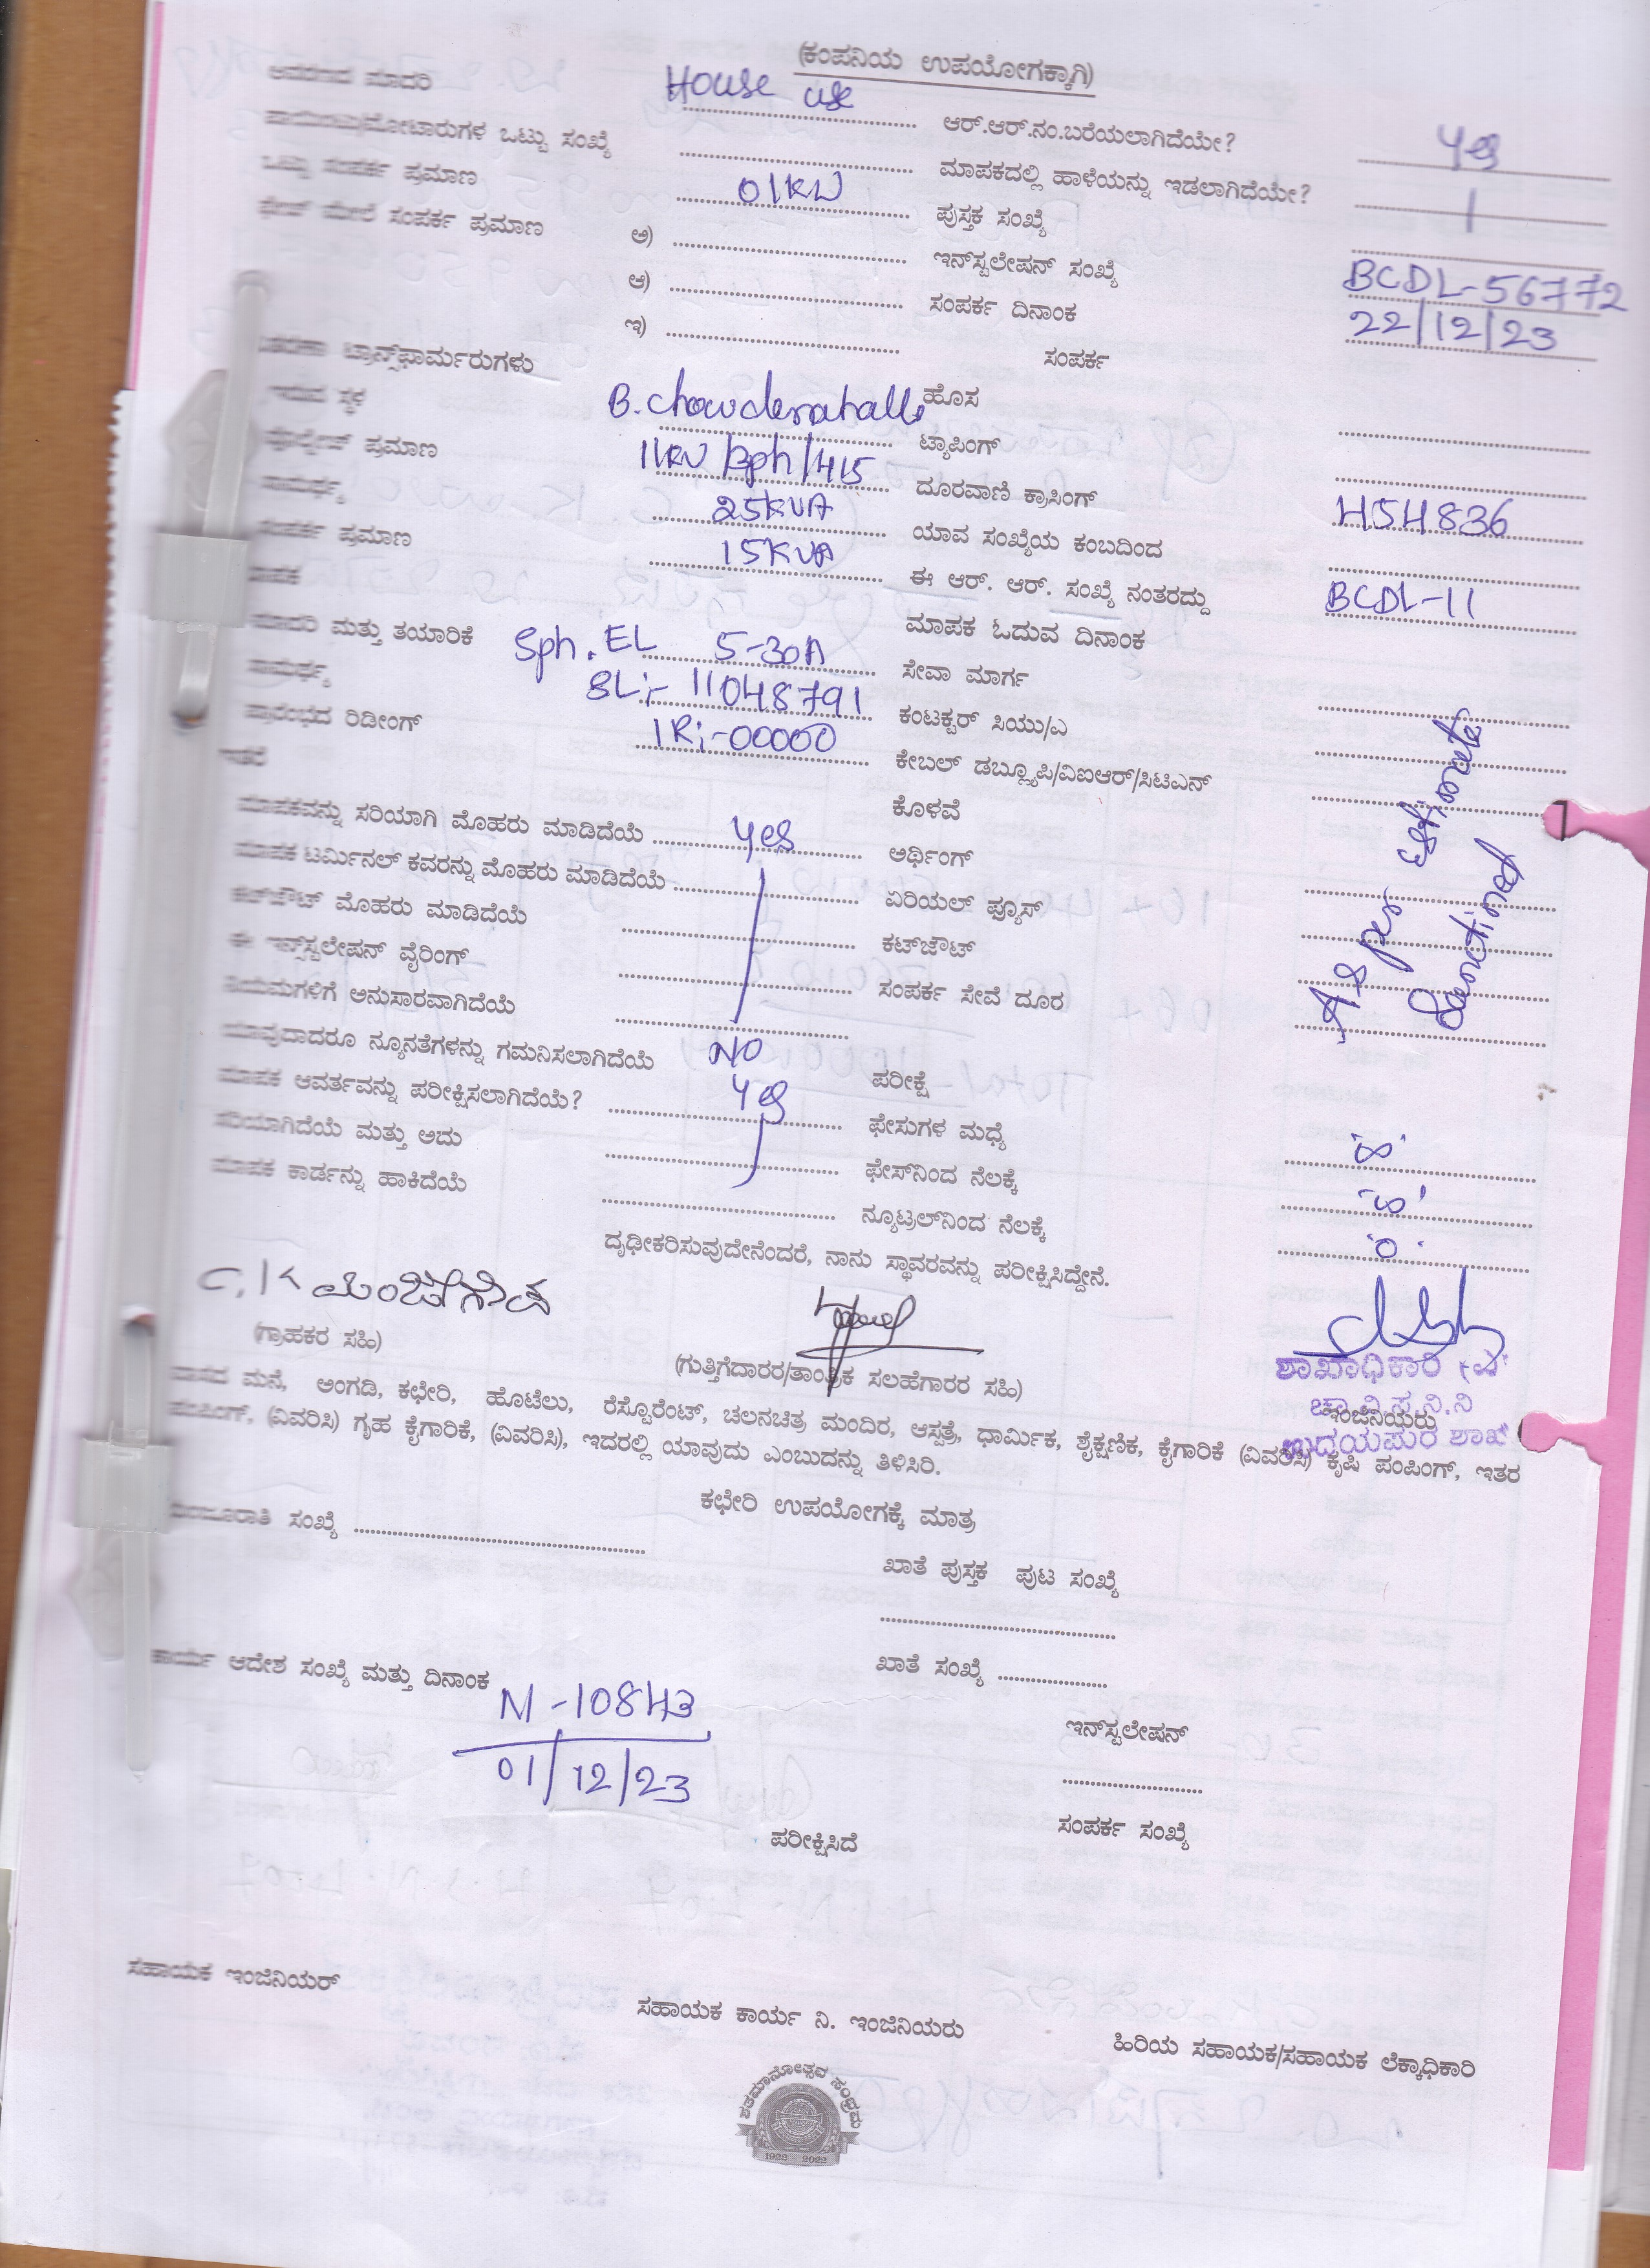 (ಕಂಪನಿಯ ಉಪಯೋಗಕ್ಕಾಗಿ)
ಆವರಣದ ಮಾದರಿ House use ಆರ್.ಆರ್.ನಂ.ಬರೆಯಲಾಗಿದೆಯೇ? yes
ಪಾಯಿಂಟು/ಮೋಟಾರುಗಳ ಒಟ್ಟು ಸಂಖ್ಯೆ ಮಾಪಕದಲ್ಲಿ ಹಾಳೆಯನ್ನು ಇಡಲಾಗಿದೆಯೇ?
ಒಟ್ಟು ಸಂಪರ್ಕ ಪ್ರಮಾಣ 01KW ಪುಸ್ತಕ ಸಂಖ್ಯೆ
ಫೇಜ್ ಮೇಲೆ ಸಂಪರ್ಕ ಪ್ರಮಾಣ ಅ) ಇನ್‌ಸ್ಟಲೇಷನ್ ಸಂಖ್ಯೆ BCDL-56772
ಆ) ಸಂಪರ್ಕ ದಿನಾಂಕ 22/12/23
ಇ) ಸಂಪರ್ಕ
ವಿತರಣಾ ಟ್ರಾನ್ಸ್‌ಫಾರ್ಮರುಗಳು ಹೊಸ
ಇರುವ ಸ್ಥಳ B. chowdenahalli ಟ್ಯಾಪಿಂಗ್
ವೋಲ್ಟೇಜ್ ಪ್ರಮಾಣ 11KV/3ph/415 ದೂರವಾಣಿ ಕ್ರಾಸಿಂಗ್
ಸಾಮರ್ಥ್ಯ 25KVA ಯಾವ ಸಂಖ್ಯೆಯ ಕಂಬದಿಂದ H54836
ಸಂಪರ್ಕ ಪ್ರಮಾಣ 15KVA ಈ ಆರ್. ಆರ್. ಸಂಖ್ಯೆ ನಂತರದ್ದು BCDL-11
ಮಾಪಕ ಮಾಪಕ ಓದುವ ದಿನಾಂಕ
ಮಾದರಿ ಮತ್ತು ತಯಾರಿಕೆ Sph. EL 5-30A ಸೇವಾ ಮಾರ್ಗ
ಸಾಮರ್ಥ್ಯ SL:- 11048791 ಕಂಟಕ್ಟರ್ ಸಿಯು/ಎ
ಪ್ರಾರಂಭದ ರಿಡೀಂಗ್ IR:-00000 ಕೇಬಲ್ ಡಬ್ಲ್ಯೂಪಿ/ವಿಐಆರ್/ಸಿಟಿಎನ್
ಇತರೆ ಕೊಳವೆ
As per Estimate
Sanctined
ಮಾಪಕವನ್ನು ಸರಿಯಾಗಿ ಮೊಹರು ಮಾಡಿದೆಯೆ yes ಅರ್ಥಿಂಗ್
ಮಾಪಕ ಟರ್ಮಿನಲ್ ಕವರನ್ನು ಮೊಹರು ಮಾಡಿದೆಯೆ ಏರಿಯಲ್ ಫ್ಯೂಸ್
ಕಟ್‌ಔಟ್ ಮೊಹರು ಮಾಡಿದೆಯೆ ಕಟ್‌ಔಟ್
ಈ ಇನ್ಸ್‌ಟಲೇಷನ್ ವೈರಿಂಗ್ ಸಂಪರ್ಕ ಸೇವೆ ದೂರ
ನಿಯಮಗಳಿಗೆ ಅನುಸಾರವಾಗಿದೆಯೆ
ಯಾವುದಾದರೂ ನ್ಯೂನತೆಗಳನ್ನು ಗಮನಿಸಲಾಗಿದೆಯೆ NO ಪರೀಕ್ಷೆ
ಮಾಪಕ ಆವರ್ತವನ್ನು ಪರೀಕ್ಷಿಸಲಾಗಿದೆಯೇ? yes ಫೇಸುಗಳ ಮಧ್ಯೆ '∞'
ಸರಿಯಾಗಿದೆಯೆ ಮತ್ತು ಅದು ಫೇಸ್‌ನಿಂದ ನೆಲಕ್ಕೆ '∞'
ಮಾಪಕ ಕಾರ್ಡನ್ನು ಹಾಕಿದೆಯೆ ನ್ಯೂಟ್ರಲ್‌ನಿಂದ ನೆಲಕ್ಕೆ '0'
ದೃಢೀಕರಿಸುವುದೇನೆಂದರೆ, ನಾನು ಸ್ಥಾವರವನ್ನು ಪರೀಕ್ಷಿಸಿದ್ದೇನೆ.
C, K ಮಂಜೇಗೌಡ
(ಗ್ರಾಹಕರ ಸಹಿ) (ಗುತ್ತಿಗೆದಾರರ/ತಾಂತ್ರಿಕ ಸಲಹೆಗಾರರ ಸಹಿ)
ಶಾಖಾಧಿಕಾರಿ (ವಿ)
ಚಾ.ವಿ.ಸ.ನಿ.ನಿ
ಇಂಜಿನಿಯರು
ಉದಯಪುರ ಶಾಖೆ
ವಾಸದ ಮನೆ, ಅಂಗಡಿ, ಕಛೇರಿ, ಹೊಟೆಲು, ರೆಸ್ಟೊರೆಂಟ್, ಚಲನಚಿತ್ರ ಮಂದಿರ, ಆಸ್ಪತ್ರೆ, ಧಾರ್ಮಿಕ, ಶೈಕ್ಷಣಿಕ, ಕೈಗಾರಿಕೆ (ವಿವರಿಸಿ) ಕೃಷಿ ಪಂಪಿಂಗ್, ಇತರ
ಪಂಪಿಂಗ್, (ವಿವರಿಸಿ) ಗೃಹ ಕೈಗಾರಿಕೆ, (ವಿವರಿಸಿ), ಇದರಲ್ಲಿ ಯಾವುದು ಎಂಬುದನ್ನು ತಿಳಿಸಿರಿ.
ಕಛೇರಿ ಉಪಯೋಗಕ್ಕೆ ಮಾತ್ರ
ಮಂಜೂರಾತಿ ಸಂಖ್ಯೆ ಖಾತೆ ಪುಸ್ತಕ ಪುಟ ಸಂಖ್ಯೆ
ಕಾರ್ಯ ಆದೇಶ ಸಂಖ್ಯೆ ಮತ್ತು ದಿನಾಂಕ ಖಾತೆ ಸಂಖ್ಯೆ
N-10843
01/12/23
ಇನ್‌ಸ್ಟಲೇಷನ್
ಪರೀಕ್ಷಿಸಿದೆ ಸಂಪರ್ಕ ಸಂಖ್ಯೆ
ಸಹಾಯಕ ಇಂಜಿನಿಯರ್ ಸಹಾಯಕ ಕಾರ್ಯ ನಿ. ಇಂಜಿನಿಯರು ಹಿರಿಯ ಸಹಾಯಕ/ಸಹಾಯಕ ಲೆಕ್ಕಾಧಿಕಾರಿ
ಶತಮಾನೋತ್ಸವ ಸಂಭ್ರಮ
1922 - 2022